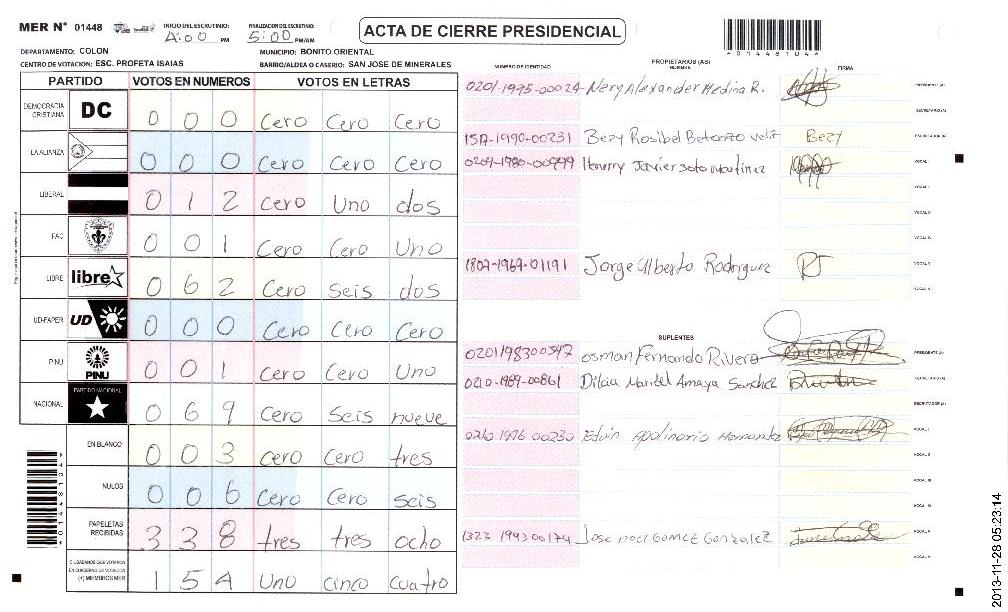 MER N° 01448 INICIO DEL ESCRUTINIO: 4:00 PM FINALIZACION DEL ESCRUTINIO: 5:00 PM/AM
ACTA DE CIERRE PRESIDENCIAL
*01448104*
DEPARTAMENTO: COLON MUNICIPIO: BONITO ORIENTAL
CENTRO DE VOTACION: ESC. PROFETA ISAIAS BARRIO/ALDEA O CASERIO: SAN JOSE DE MINERALES
PARTIDO VOTOS EN NUMEROS VOTOS EN LETRAS
DEMOCRACIA CRISTIANA DC 0 0 0 Cero Cero Cero
LA ALIANZA 0 0 0 Cero Cero Cero
LIBERAL 0 1 2 Cero Uno dos
FAC 0 0 1 Cero Cero Uno
LIBRE libre 0 6 2 Cero Seis dos
UD-FAPER UD 0 0 0 Cero Cero Cero
PINU PINU 0 0 1 Cero Cero Uno
NACIONAL PARTIDO NACIONAL 0 6 9 Cero Seis nueve
EN BLANCO 0 0 3 Cero Cero tres
NULOS 0 0 6 Cero Cero seis
PAPELETAS RECIBIDAS 3 3 8 tres tres ocho
CIUDADANOS QUE VOTARON EN CUADERNO DE VOTACION (+) MIEMBROS MER 1 5 4 Uno cinco cuatro
NUMERO DE IDENTIDAD PROPIETARIOS (AS) NOMBRE FIRMA
0201-1995-00024 Nery Alexander Medina R. PRESIDENTE (A)
SECRETARIO (A)
Bezy Rosibel Bezy ESCRUTADOR (A)
Javier soto Martinez VOCAL I
VOCAL II
VOCAL III
VOCAL IV
1807-1969-01191 Jorge Alberto Rodriguez VOCAL V
SUPLENTES
0201198300347 osman Fernando Rivera PRESIDENTE (A)
0210-1989-00861 Maribel Amaya Sanchez SECRETARIO (A)
ESCRUTADOR (A)
0210 1996 00230 Edvin Apolinario Hernandez VOCAL I
VOCAL II
VOCAL III
VOCAL IV
1323 1993 00174 Jose noel Gomez Gonzalez VOCAL V
2013-11-28 05:23:14